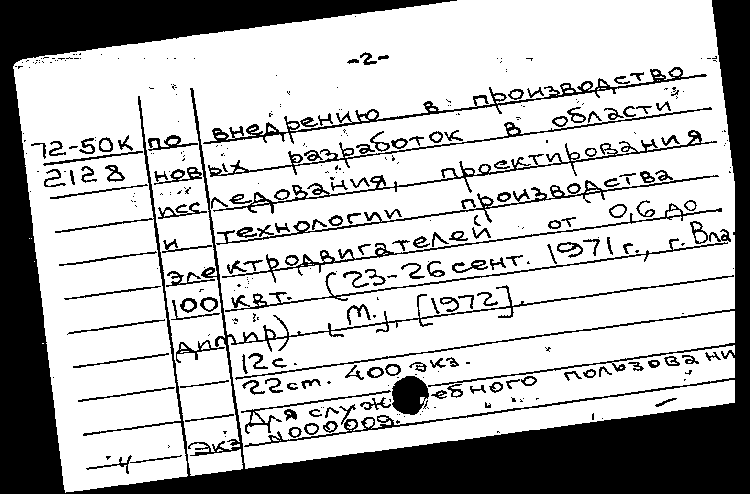 -2-
72-50к по внедрению в производство
2128 новых разработок в области
исследования, проектирования
и технологии производства
электродвигателей от 0,6 до
100 квт. (23-26 сент. 1971 г., г. Вла-
димир). [М.], [1972].
12 с.
22 см. 400 экз.
Для служебного пользовани
экз N000009.
4